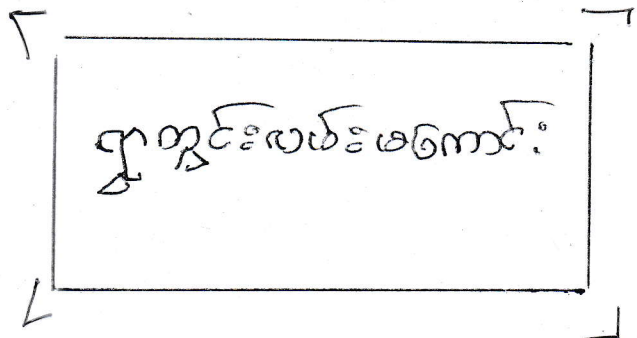 ရွာတွင်းလမ်းမကောင်း